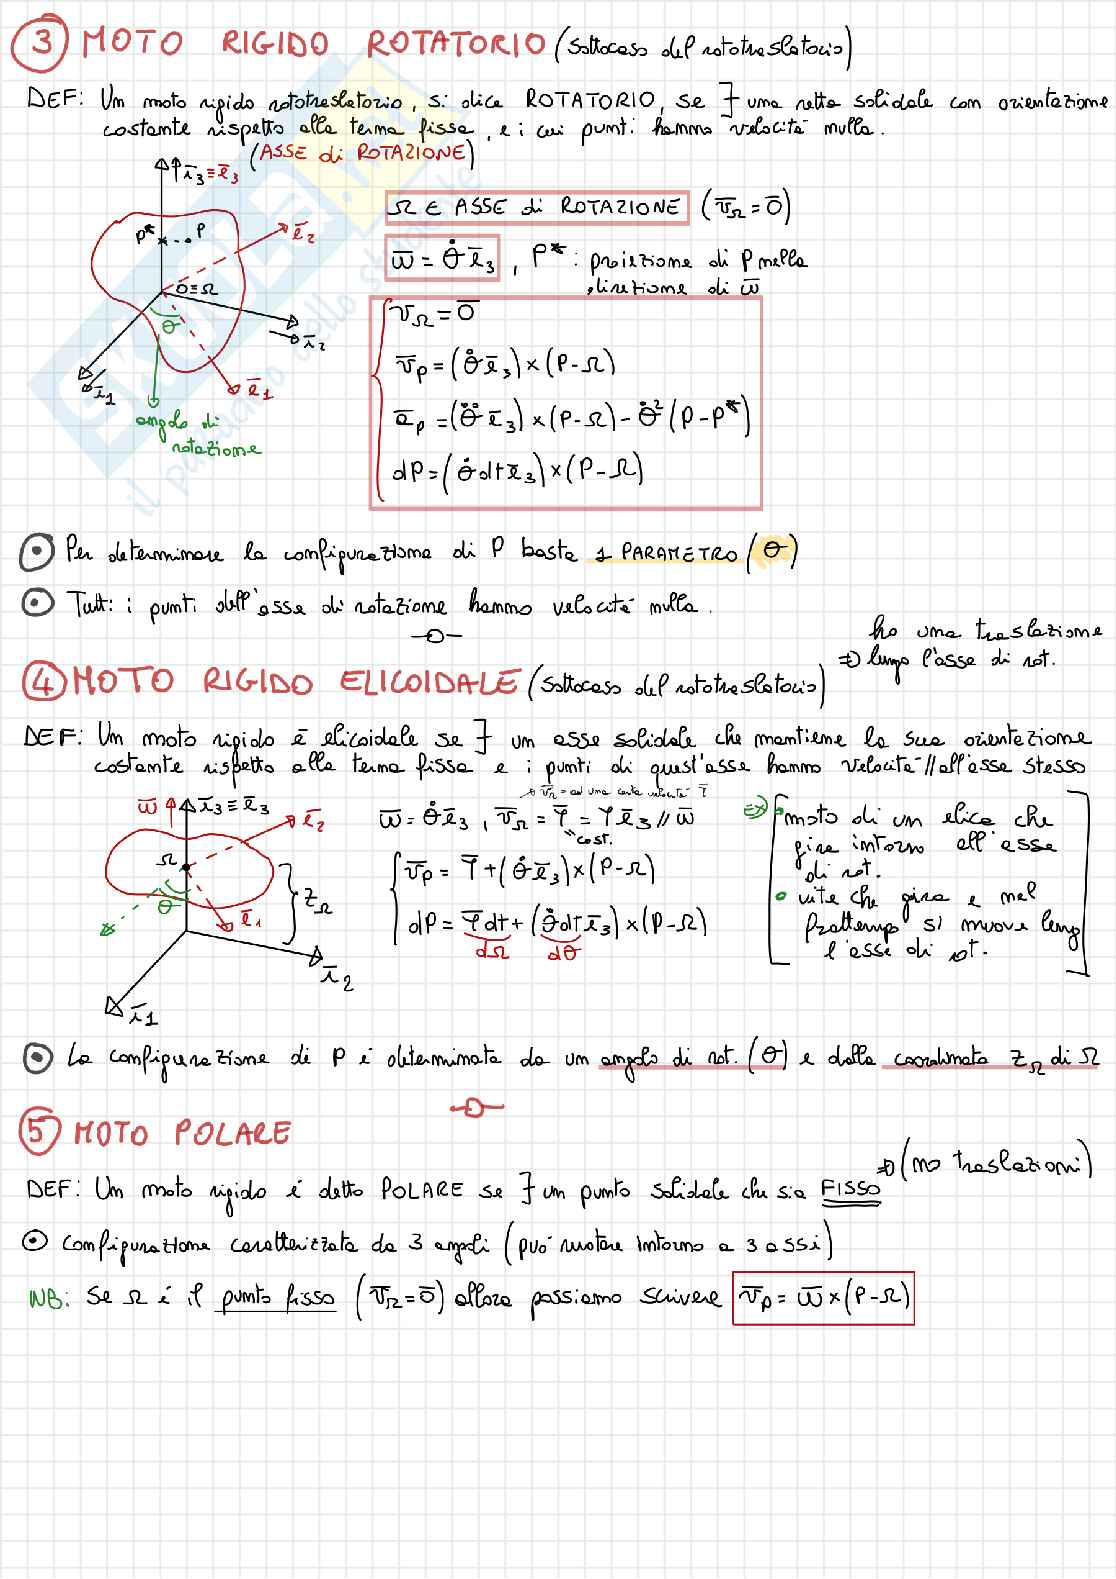 3 MOTO RIGIDO ROTATORIO (sottocaso del rototraslatorio)
DEF: Un moto rigido rototraslatorio, si dice ROTATORIO, se ∃ una retta solidale con orientazione
costante rispetto alla terna fissa, e i cui punti hanno velocità nulla.
(ASSE di ROTAZIONE)
ī₃≡ē₃
ē₂
P* P
O≡Ω
θ
ī₂
ī₁
ē₁
angolo di
rotazione
Ω ∈ ASSE di ROTAZIONE (v̄_Ω = ō)
ω̄ = θ̇ ē₃ , P*: proiezione di P nella
direzione di ω̄
v̄_Ω = ō
v̄_P = (θ̇ ē₃) × (P-Ω)
ā_P = (θ̈ ē₃) × (P-Ω) - θ̇² (P-P*)
dP = (θ̇ dt ē₃) × (P-Ω)
Per determinare la configurazione di P basta 1 PARAMETRO (θ)
Tutti i punti dell'asse di rotazione hanno velocità nulla.
ho una traslazione
⇒ lungo l'asse di rot.
4 MOTO RIGIDO ELICOIDALE (sottocaso del rototraslatorio)
DEF: Un moto rigido è elicoidale se ∃ un asse solidale che mantiene la sua orientazione
costante rispetto alla terna fissa e i punti di quest'asse hanno velocità // all'asse stesso
→ v̄_Ω = ad una certa velocità τ̄
ω̄ ī₃≡ē₃
ē₂
Ω
θ
ē₁
z_Ω
ī₂
ī₁
ω̄ = θ̇ ē₃ , v̄_Ω = τ̄ = τ ē₃ // ω̄
cost.
v̄_P = τ̄ + (θ̇ ē₃) × (P-Ω)
dP = τ̄ dt + (θ̇ dt ē₃) × (P-Ω)
dΩ dθ
EX • moto di un elica che
gira intorno all'asse
di rot.
• vite che gira e nel
frattemp si muove lung
l'asse di rot.
La configurazione di P è determinata da un angolo di rot. (θ) e dalla coordinata z_Ω di Ω
5 MOTO POLARE
⇒ (no traslazioni)
DEF: Un moto rigido è detto POLARE se ∃ un punto solidale che sia FISSO
Configurazione caratterizzata da 3 angoli (può ruotare intorno a 3 assi)
NB: Se Ω è il punto fisso (v̄_Ω = ō) allora possiamo scrivere v̄_P = ω̄ × (P-Ω)